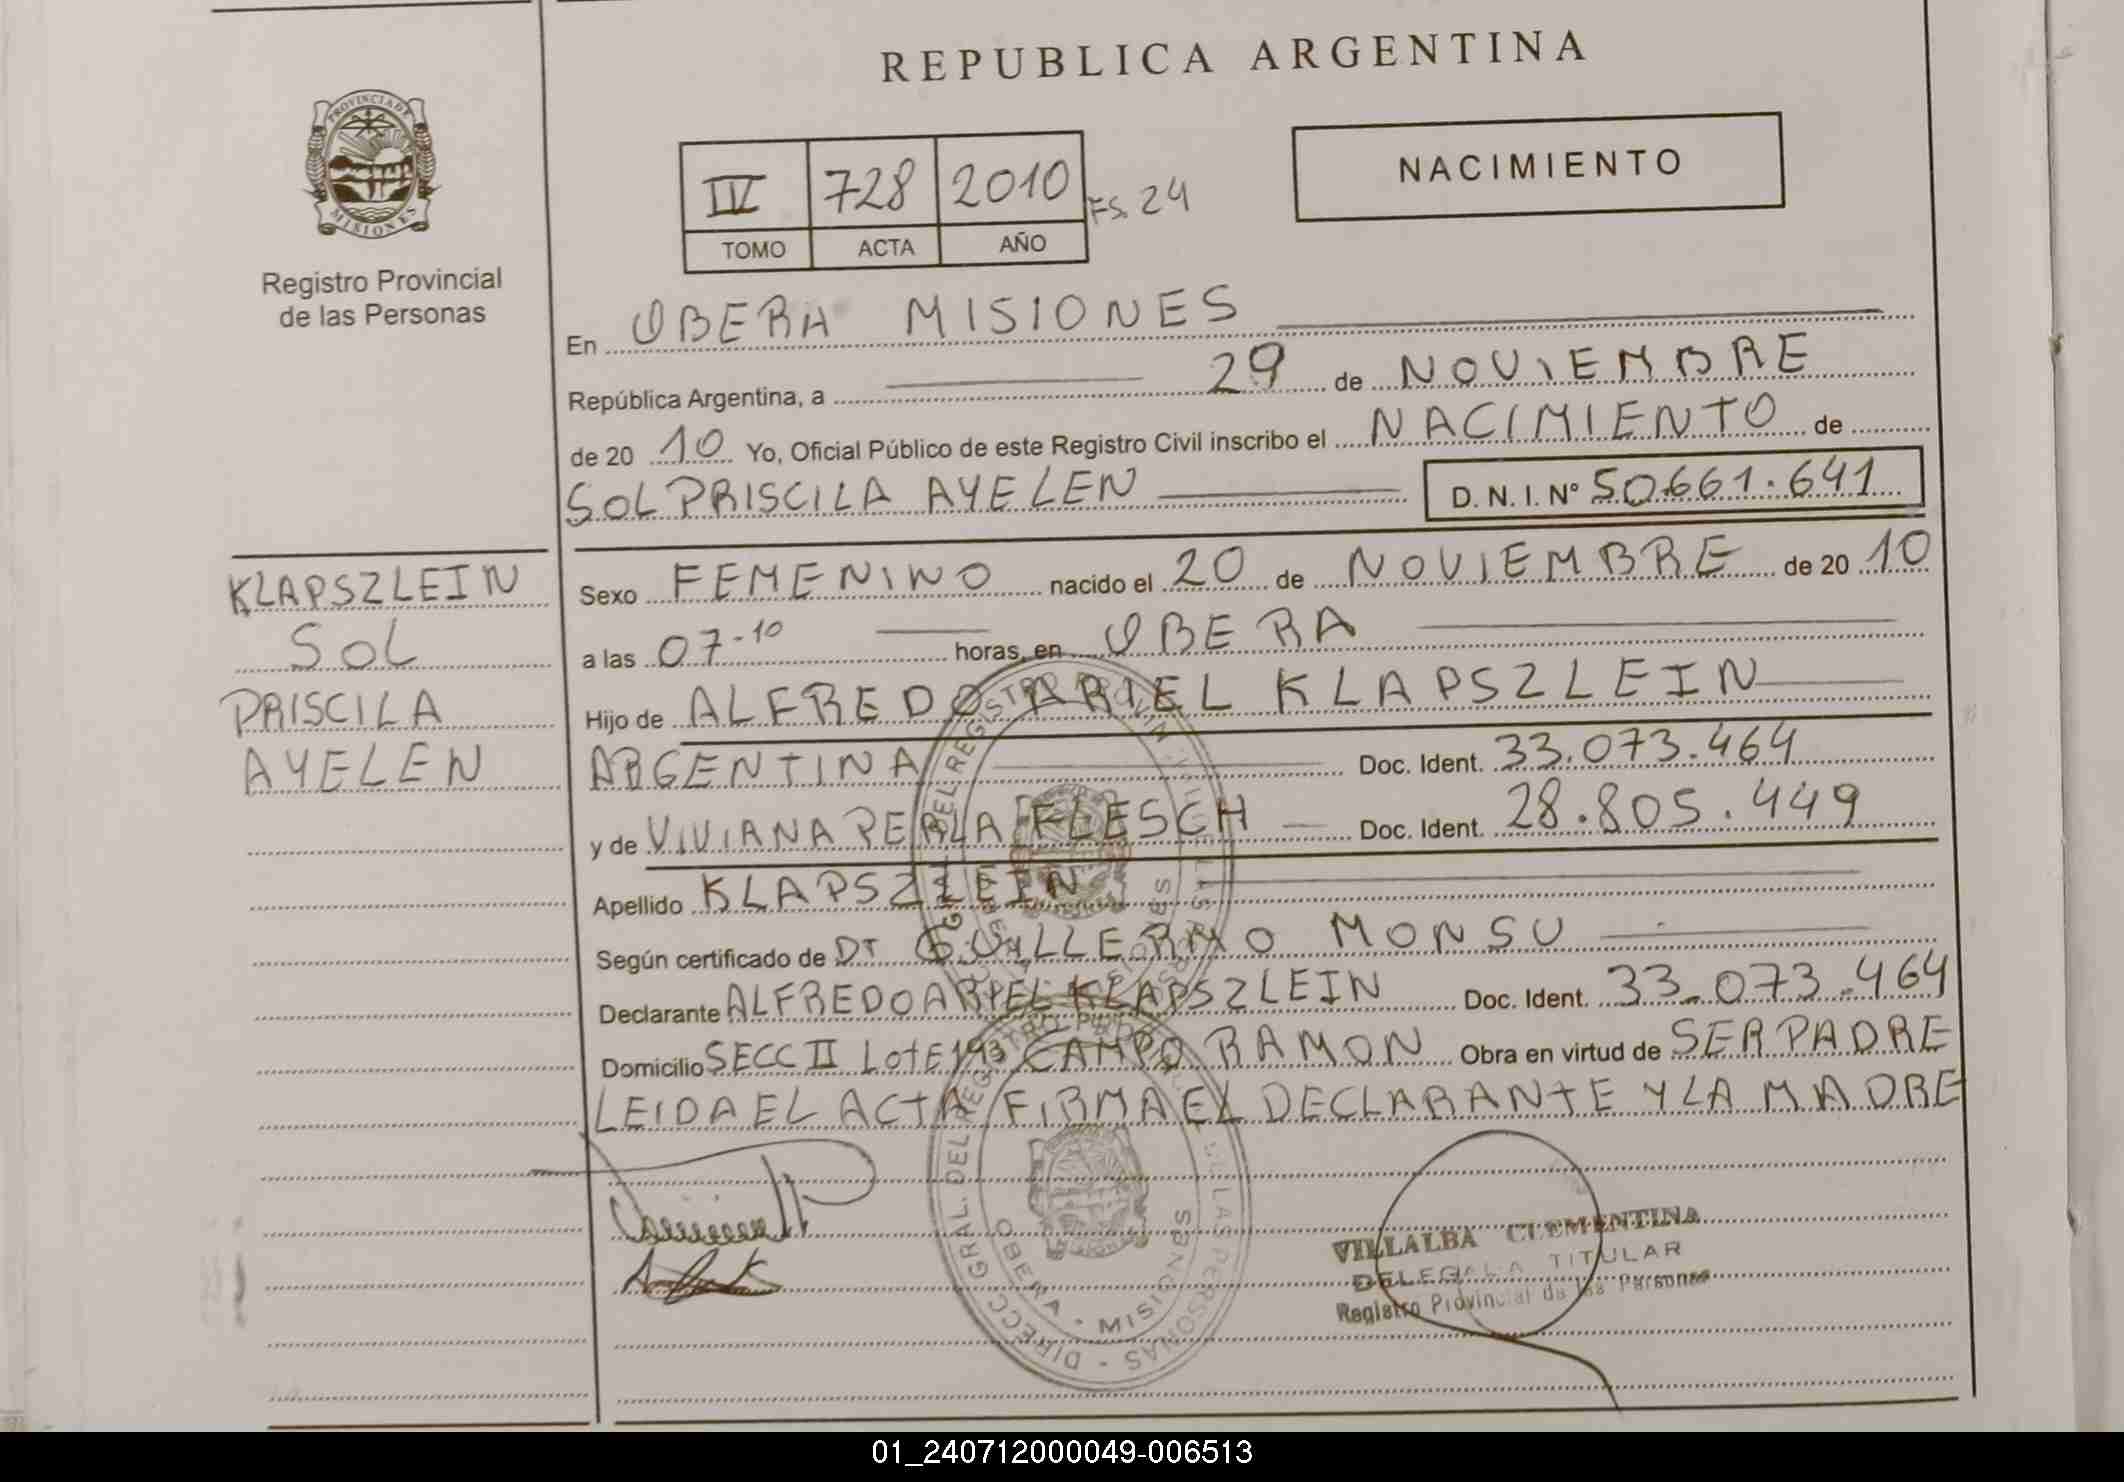 REPUBLICA ARGENTINA
PROVINCIA DE
MISIONES
Registro Provincial
de las Personas
IV 728 2010 FS. 24
TOMO ACTA AÑO
NACIMIENTO
En OBERA MISIONES
República Argentina, a 29 de NOVIEMBRE
de 20 10 Yo, Oficial Público de este Registro Civil inscribo el NACIMIENTO de
SOL PRISCILA AYELEN D. N. I. Nº 50.661.641
KLAPSZLEIN
SOL
PRISCILA
AYELEN
Sexo FEMENINO nacido el 20 de NOVIEMBRE de 20 10
a las 07-10 horas, en OBERA
Hijo de ALFREDO ARIEL KLAPSZLEIN
ARGENTINA Doc. Ident. 33.073.464
y de VIVIANA PERLA FLESCH Doc. Ident. 28.805.449
Apellido KLAPSZLEIN
Según certificado de Dr GUILLERMO MONSU
Declarante ALFREDO ARIEL KLAPSZLEIN Doc. Ident. 33.073.464
Domicilio SECC II LotE 193 CAMPO RAMON Obra en virtud de SER PADRE
LEIDA EL ACTA FIRMA EL DECLARANTE Y LA MADRE
DIRECC. GRAL. DEL REGISTRO PROVINCIAL DE LAS PERSONAS
OBERA - MISIONES
VILLALBA CLEMENTINA
DELEGADA TITULAR
Registro Provincial de las Personas
01_240712000049-006513